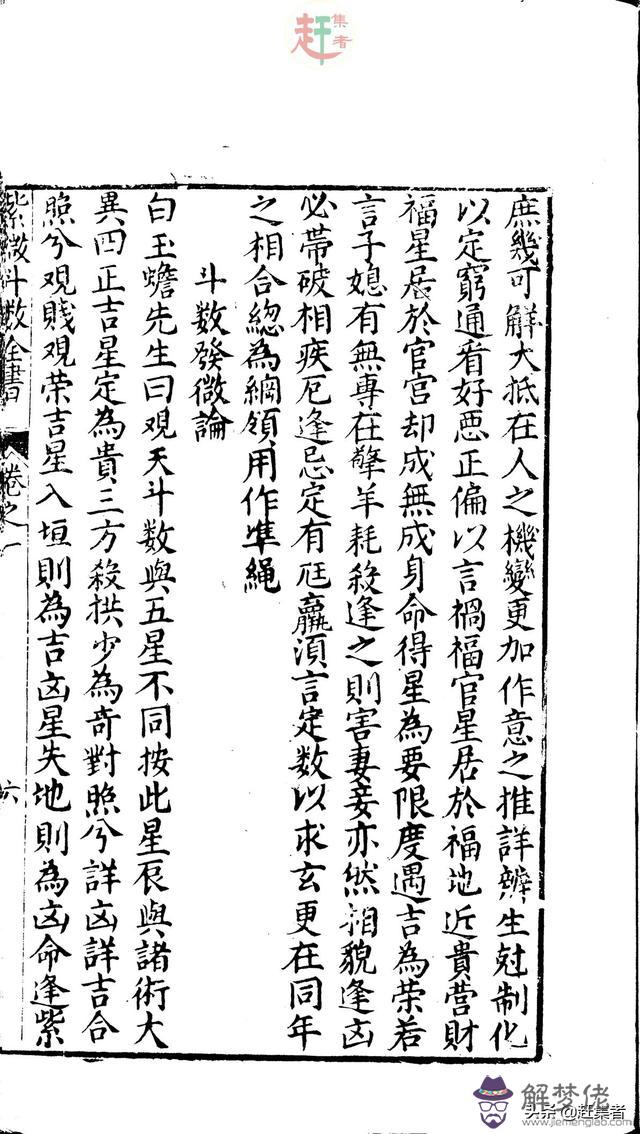 赶集者
庶幾可觧大抵在人之機變更加作意之推詳辨生尅制化
以定窮通看好惡正偏以言禍福官星居於福地近貴营財
福星居於官宫却成無成身命得星為要限度遇吉為荣若
言子媳有無專在擎羊耗殺逢之則害妻妾亦然相貌逢凶
必帶破相疾厄逢忌定有尫羸湏言定数以求玄更在同年
之相合緫為綱領用作凖䋲
斗数發微論
白玉蟾先生曰观天斗数與五星不同按此星辰與諸術大
異四正吉星定為貴三方殺拱少為奇對照兮詳凶詳吉合
照兮观賎观荣吉星入垣則為吉凶星失地則為凶命逢紫
紫微斗数全書
卷之一
六
解梦佬
头条@赶集者
www.jiemenglao.com